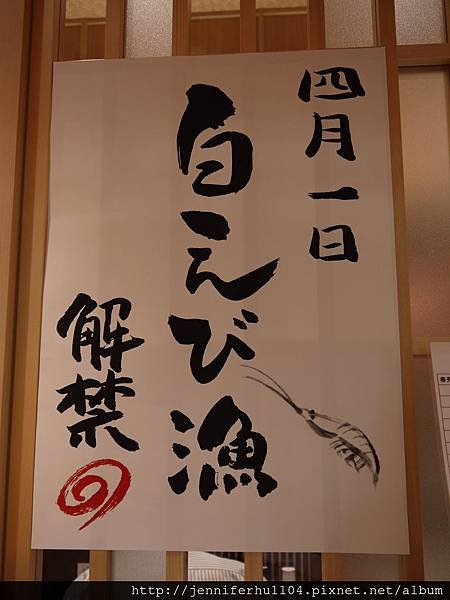 四月一日
白えび漁
解禁
http://jenniferhu1104.pixnet.net/album